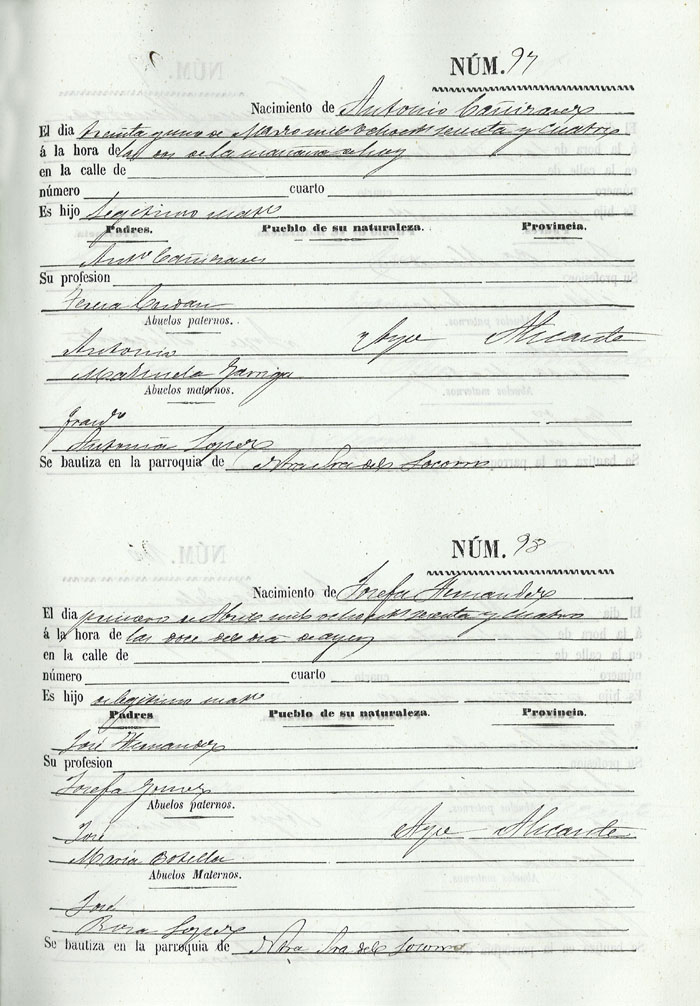 NÚM. 97
Nacimiento de Antonio Cañizares
El dia treinta y uno de Marzo mil ochocts setenta y cuatro
á la hora de las de la mañana de hoy
en la calle de
número cuarto
Es hijo legitimo matro
Padres. Pueblo de su naturaleza. Provincia.
Anto Cañizares
Su profesion
Teresa
Abuelos paternos.
Antonio Aspe Alicante
Manuela Garriga
Abuelos maternos.
Franco
Antonia Lopez
Se bautiza en la parroquia de Ntra Sra del Socorro
NÚM. 98
Nacimiento de Josefa Hernandez
El dia primero de Abril mil ochocts setenta y cuatro
á la hora de las doce del dia de ayer
en la calle de
número cuarto
Es hijo de legitimo matro
Padres Pueblo de su naturaleza. Provincia.
José Hernandez
Su profesion
Josefa Gomez
Abuelos paternos.
José Aspe Alicante
Maria Botella
Abuelos Maternos.
José
Rosa Lopez
Se bautiza en la parroquia de Ntra Sra del Socorro